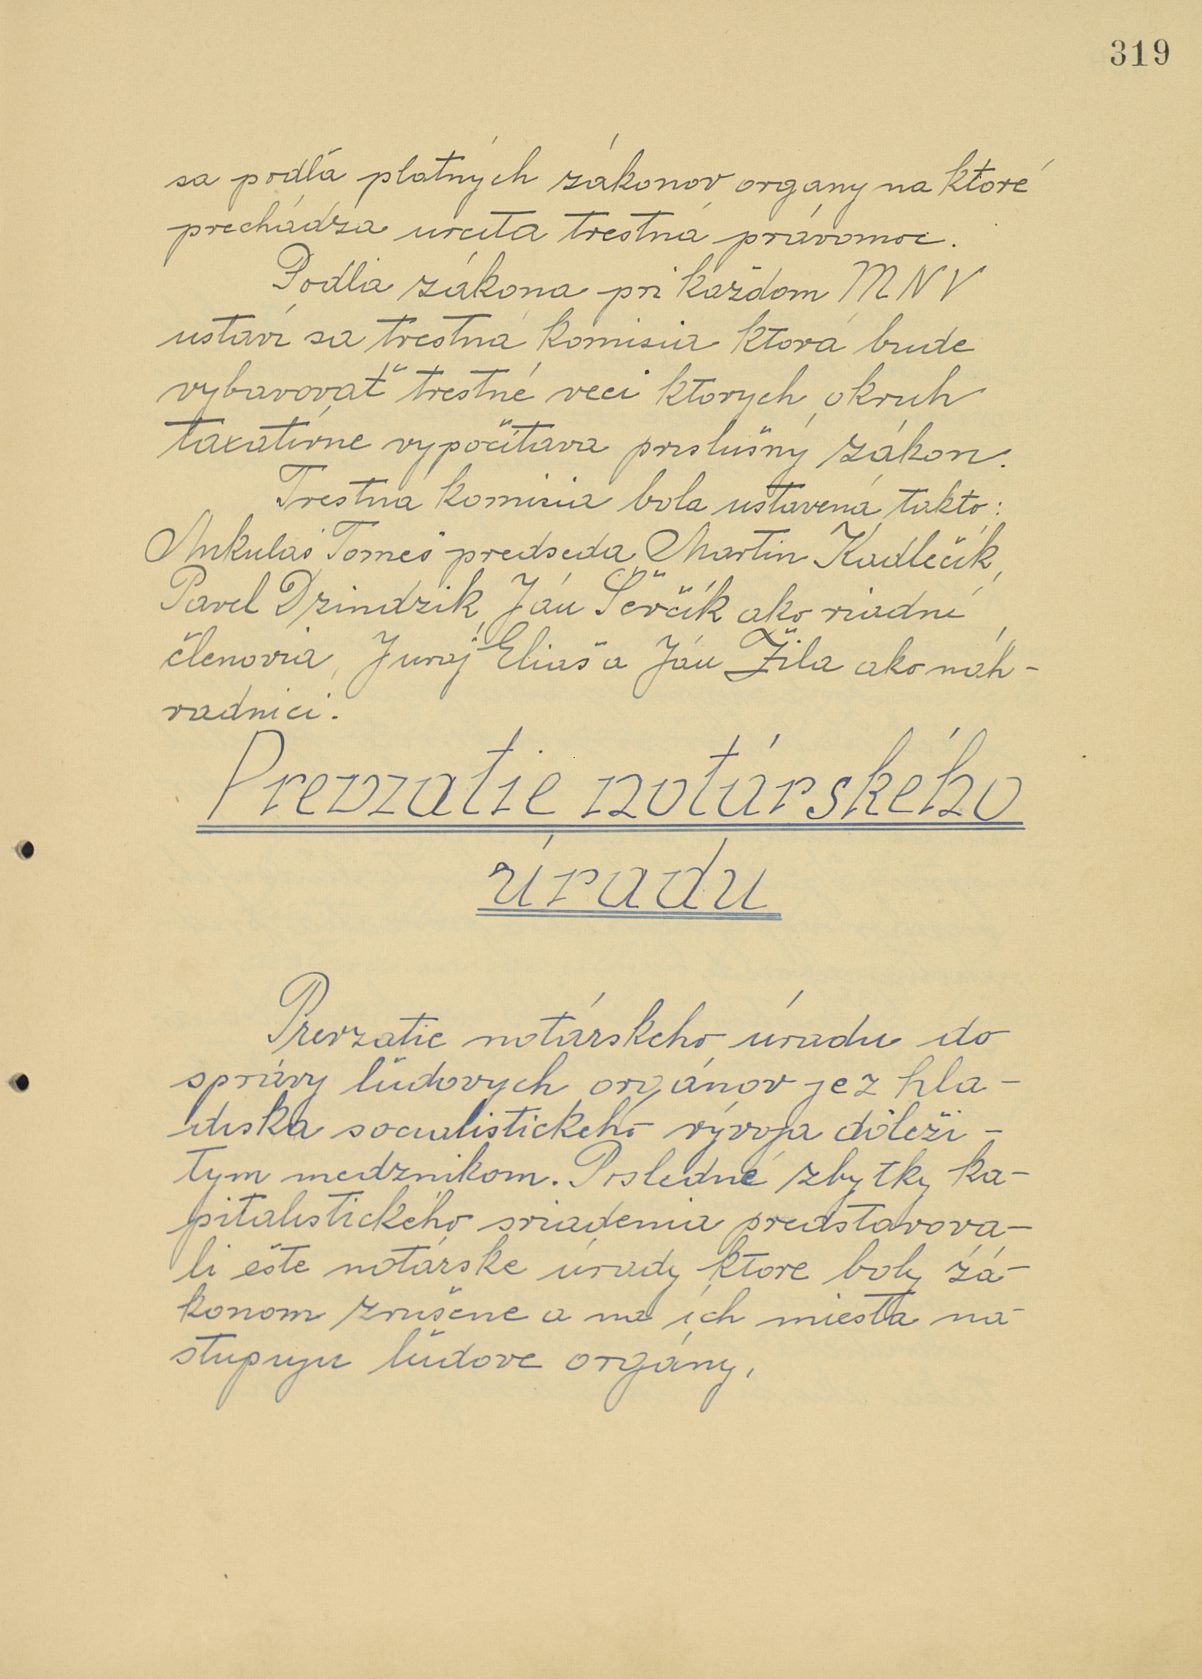 319
sa podľa platných zákonov organy na ktoré
prechádza určita trestná právomoc.
Podľa zákona pri každom MNV
ustaví sa trestná komisia ktorá bude
vybavovať trestné veci ktorych okruh
taxatívne vypočítava príslušný zákon.
Trestna komisia bola ustavená takto:
Mikulaš Tomeš predseda, Martin Kadlečík,
Pavel Dzindzik, Ján Ševčík ako riadni
členovia, Juraj Eliaš a Ján Žila ako náh-
radnici.
Prevzatie notárského
úradu
Prevzatie notárskeho úradu do
správy ľudovych orgánov je z hla-
diska socialistického vývoja dôleži-
tym medznikom. Posledné zbytky ka-
pitalistického sriadenia predstavova-
li ešte notárske úrady ktore boly zá-
konom zrušene a na ích miesta na-
stupuju ľudove orgány.